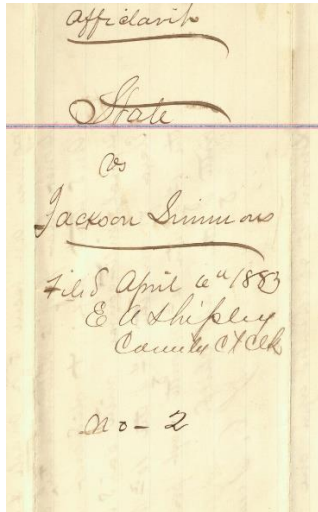 Affidavit
State
vs
Jackson Simmons
Filed April 6th 1883
E A Shipley
County Ct Clk
No - 2